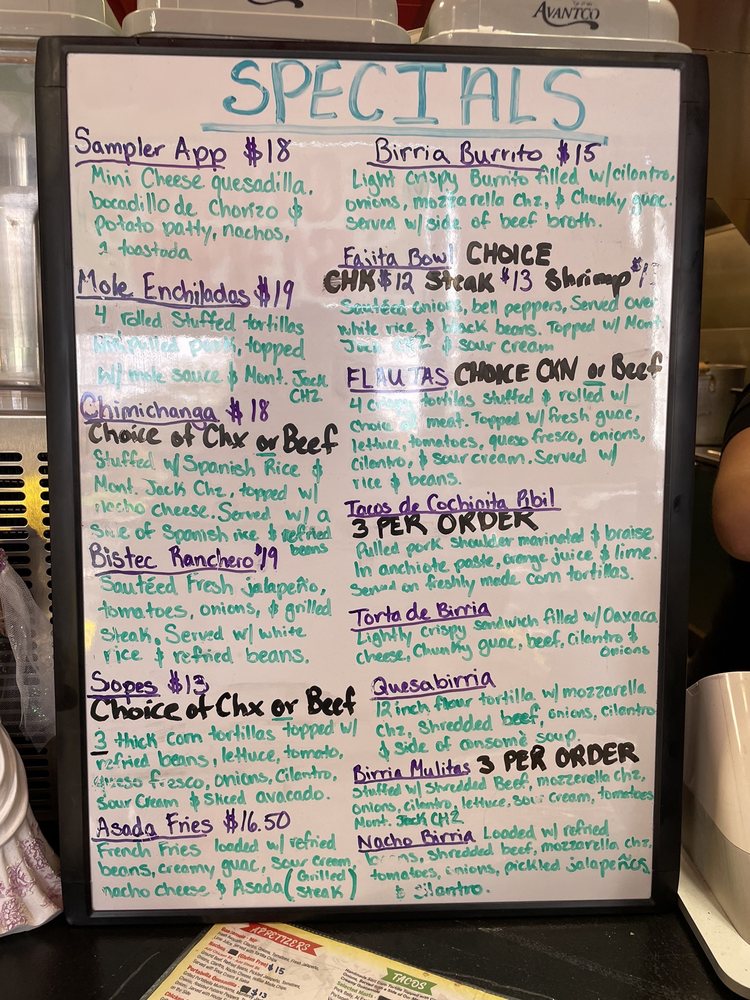 AVANTCO
SPECIALS
Sampler App $18
Mini Cheese quesadilla,
bocadillo de chorizo &
potato patty, nachos,
1 toastada
Mole Enchiladas $19
4 rolled Stuffed tortillas
pulled pork, topped
w/ mole sauce & Mont. Jack
CHZ
Chimichanga $18
Choice of Chx or Beef
Stuffed w/ Spanish Rice &
Mont. Jack Chz, topped w/
nacho cheese. Served w/ a
side of Spanish rice & refried
beans
Bistec Ranchero $19
Sautéed Fresh jalapeño,
tomatoes, onions, & grilled
steak. Served w/ white
rice & refried beans.
Sopes $13
Choice of Chx or Beef
3 thick corn tortillas topped w/
refried beans, lettuce, tomato,
queso fresco, onions, cilantro,
Sour Cream & sliced avocado.
Asada Fries $16.50
French Fries loaded w/ refried
beans, creamy guac, sour cream,
nacho cheese & Asada (Grilled
steak)
Birria Burrito $15
Light crispy Burrito filled w/cilantro,
onions, mozzarella chz, & chunky guac.
Served w/ side of beef broth.
Fajita Bowl CHOICE
CHK $12 Steak $13 Shrimp
Sautéed onions, bell peppers, Served over
white rice, & black beans. Topped w/ Mont
Jack CHZ & sour cream
FLAUTAS CHOICE CKN or Beef
4 crispy tortilas stuffed & rolled w/
choice of meat. Topped w/ fresh guac,
lettuce, tomatoes, queso fresco, onions,
cilantro, & sour cream. Served w/
rice & beans.
Tacos de Cochinita Pibil
3 PER ORDER
Pulled pork shoulder marinated & braise
In anchiote paste, orange juice & lime.
Served on freshly made corn tortillas.
Torta de Birria
Lightly crispy sandwich filled w/ Oaxaca
cheese, Chunky guac, beef, cilantro &
onions
Quesabirria
12 inch flour tortilla w/ mozzarella
chz, shredded beef, onions, cilantro
& side of consomé soup.
Birria Mulitas 3 PER ORDER
Stuffed w/ shredded Beef, mozzerella chz,
onions, cilantro, lettuce, sour cream, tomatoes
Mont. Jack CHZ
Nacho Birria Loaded w/ refried
beans, shredded beef, mozzarella chz,
tomatoes, onions, pickled jalapeños
& cilantro.
APPETIZERS
$15
TACOS